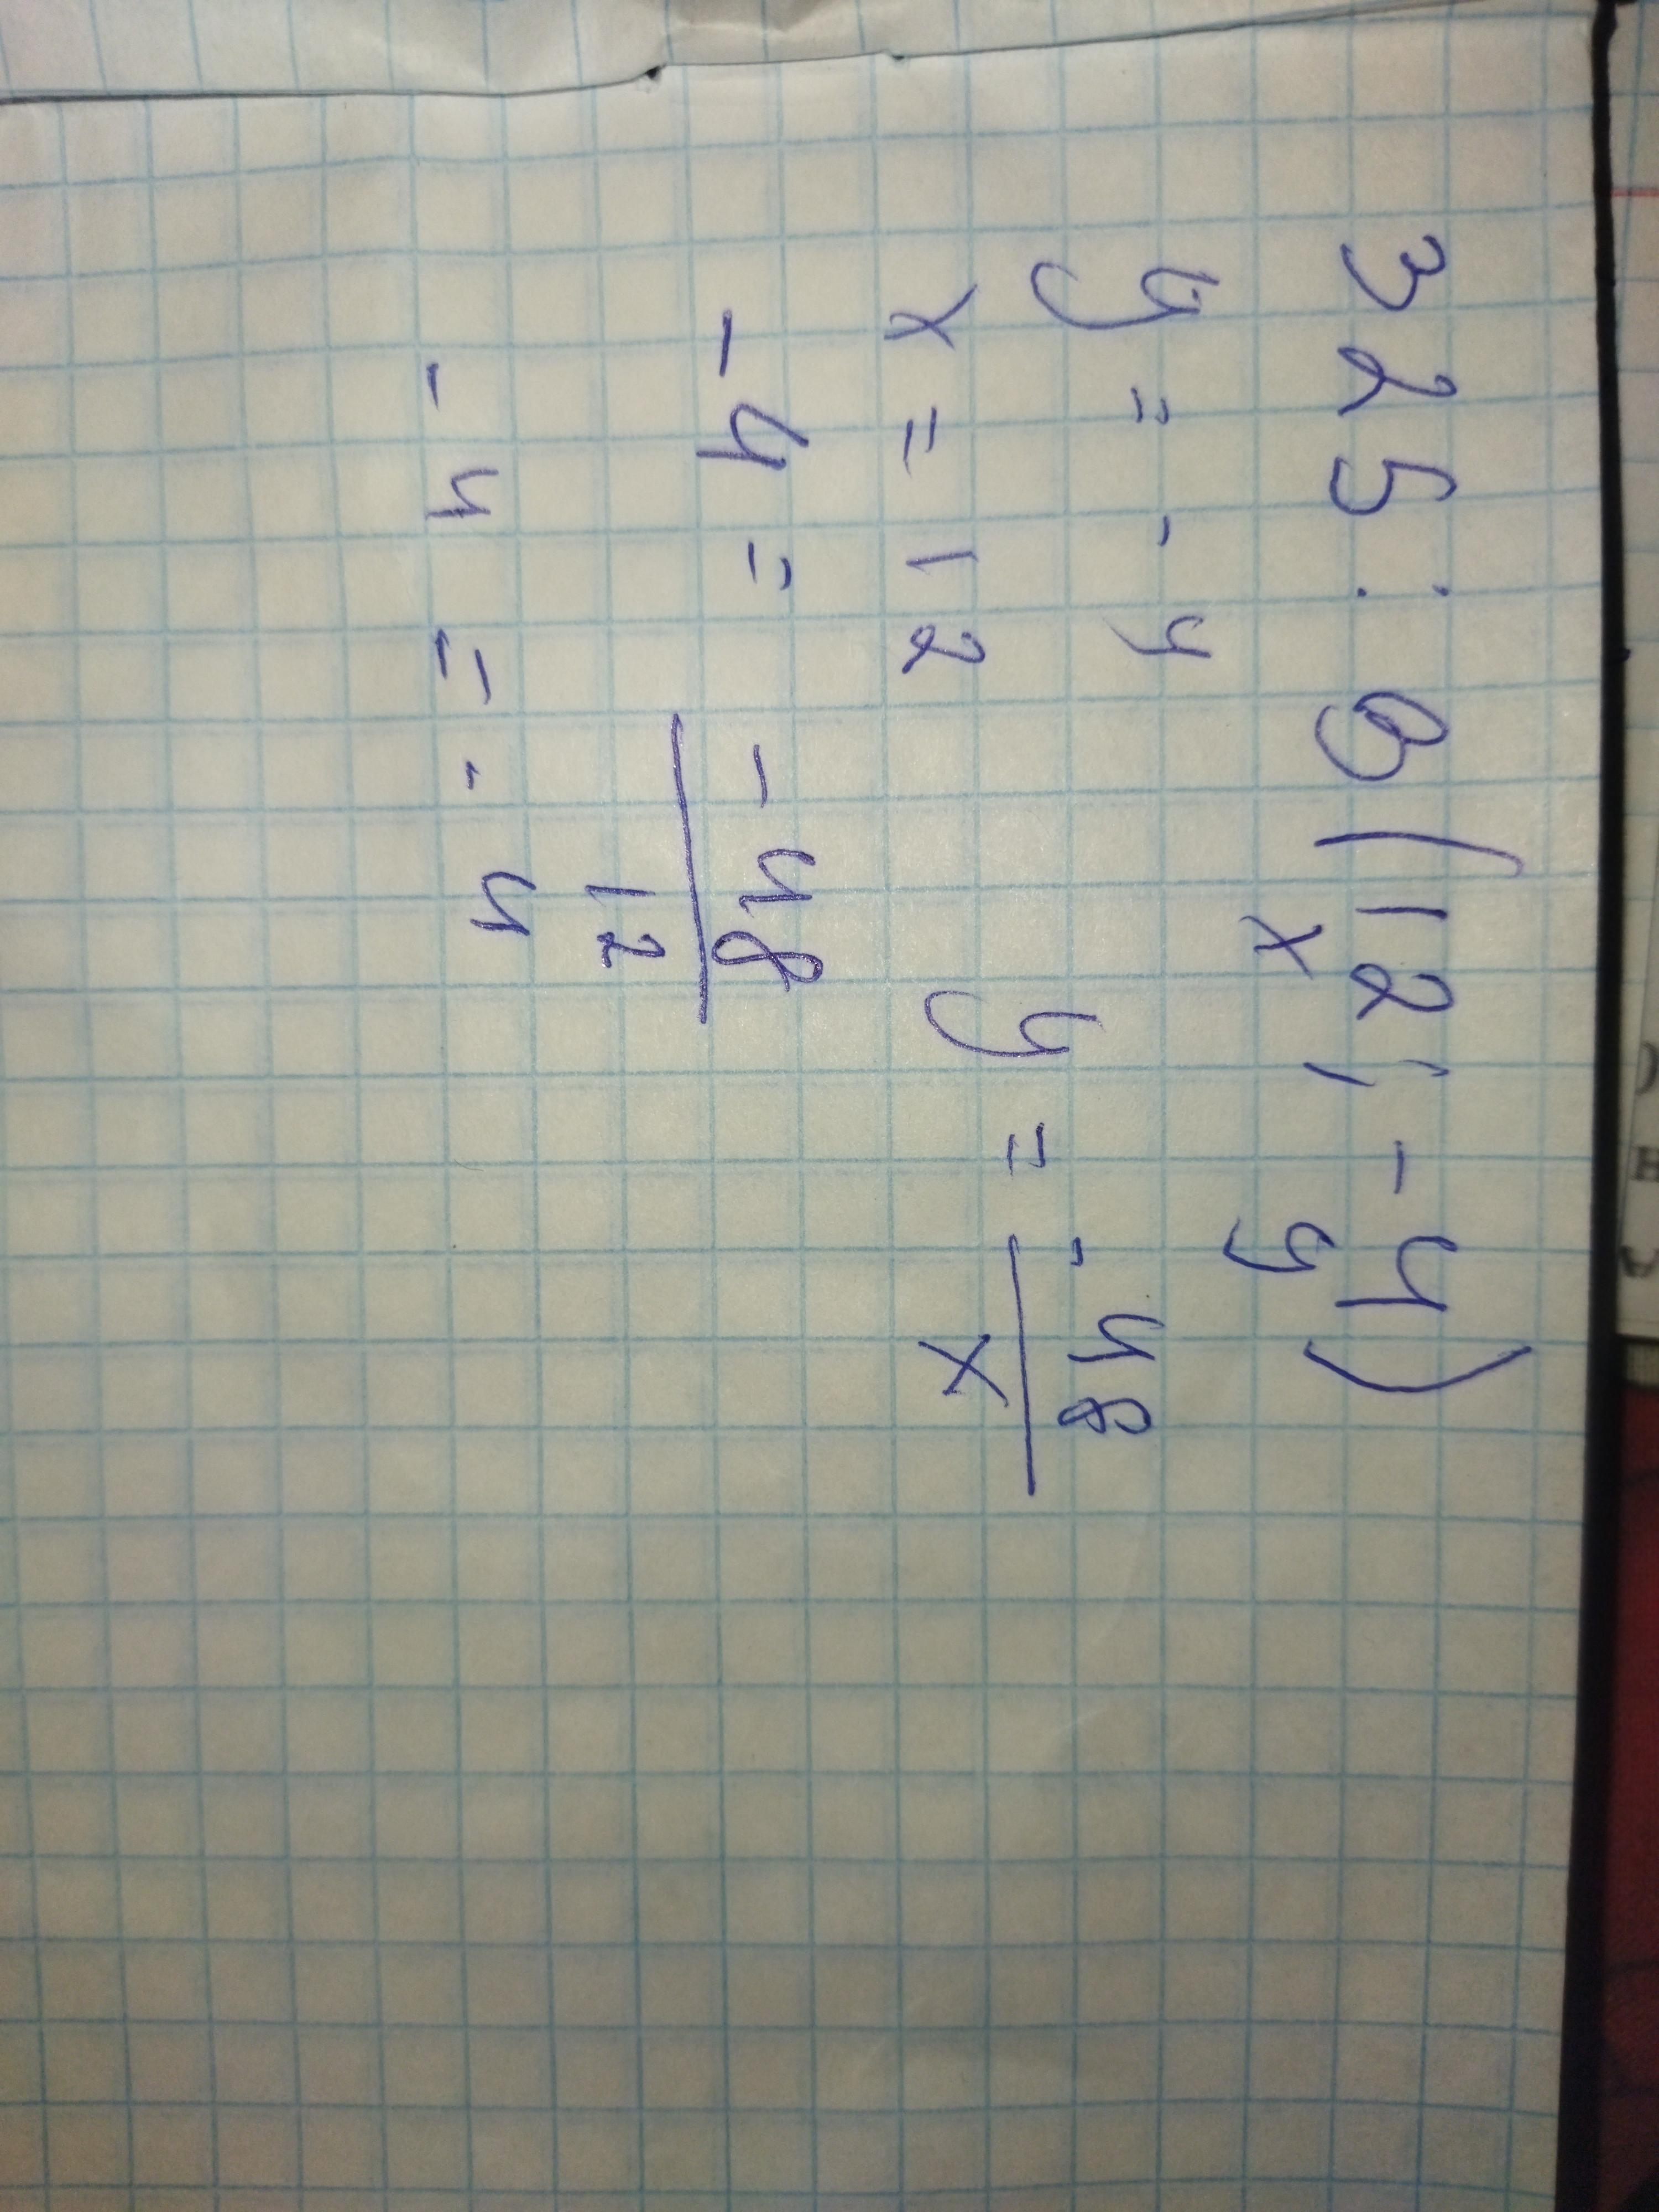 325: B(12; -4)
x y
y = -4
y = -48/x
x = 12
-4 = -48/12
-4 = -4